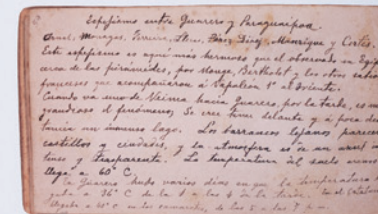 Espejismo entre Guarero y Paraguaipoa.
Monagas, Ferreira, Pérez Díaz, Manrique y Cortés.
Este espejismo es aquí más hermoso que el observado en Egip
cerca de las pirámides, por Monge, Berthollet y los otros sabios
franceses que acompañaron á Napoleón 1º al Oriente.
Cuando va uno de Neima hacia Guarero, por la tarde, es más
grandioso el fenómeno; Se cree tener delante y á poca dis
tancia un inmenso lago. Los barrancos lejanos parecen
castillos y ciudades, y la atmósfera es de un azul in
tenso y transparente. La temperatura del suelo arenoso
llega á 60° C.
En Guarero hubo varios días en que la temperatura
36° C de la 1 a las 4 de la tarde.
llegaba a en las de las p. m.